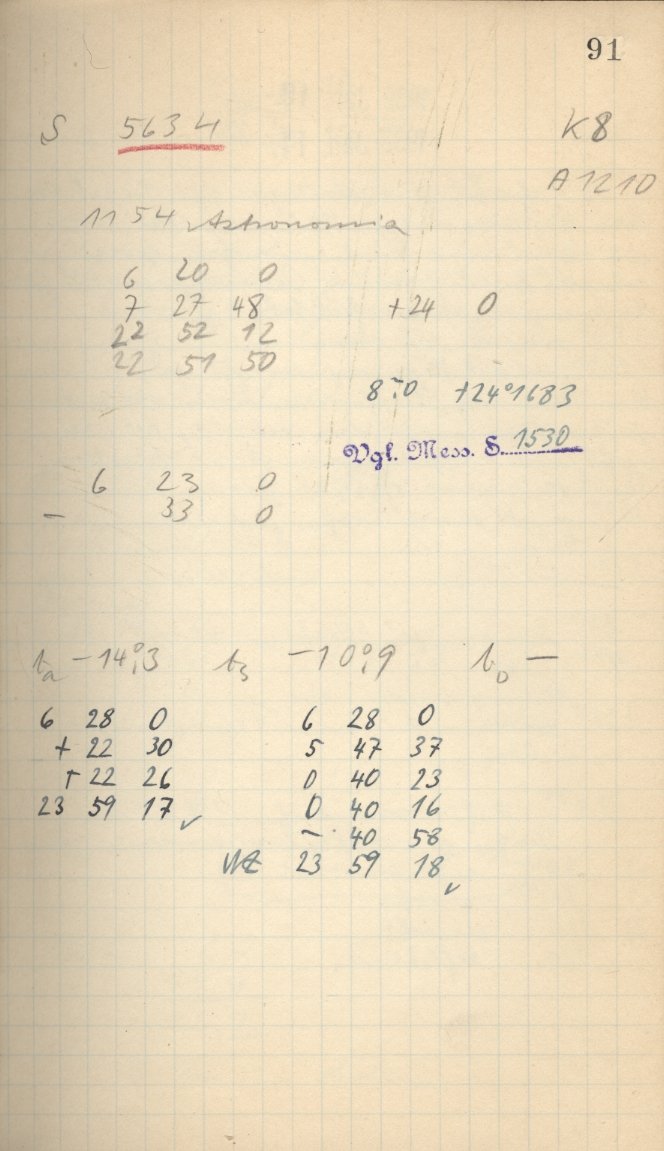 91
S 5634 K8
A 1210
1154 Astronomia
6 20 0
7 27 48 +24 0
22 52 12
22 51 50
8.0 +24°1683
Vgl. Mess. S. 1530
6 23 0
– 33 0
ta –14°,3 ts –10°,9 to –
6 28 0 6 28 0
+ 22 30 5 47 37
+ 22 26 0 40 23
23 59 17 ✓ 0 40 16
– 40 58
WZ 23 59 18 ✓